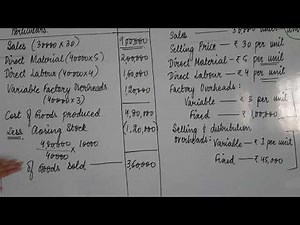 Particulars.
Sales (30000 x 30) 900,000
Direct Material (40000 x 5) 200000
Direct Labour (40000 x 4) 160000
Variable Factory Overheads 120000
(40000 x 3)
Cost of Goods produced 4,80,000
Less Closing Stock (1,20,000)
480000 x 10000
40000
of Goods sold 360000
Sales 30,000 unit
Selling Price - ₹ 30 per unit
Direct Material - ₹ 5 per unit
Direct Labour - ₹ 4 per unit
Factory Overheads:
Variable - ₹ 3 per unit
Fixed - ₹ 1,00,000
Selling & distribution
overheads: Variable - ₹ 1 per unit
Fixed - ₹ 45,000